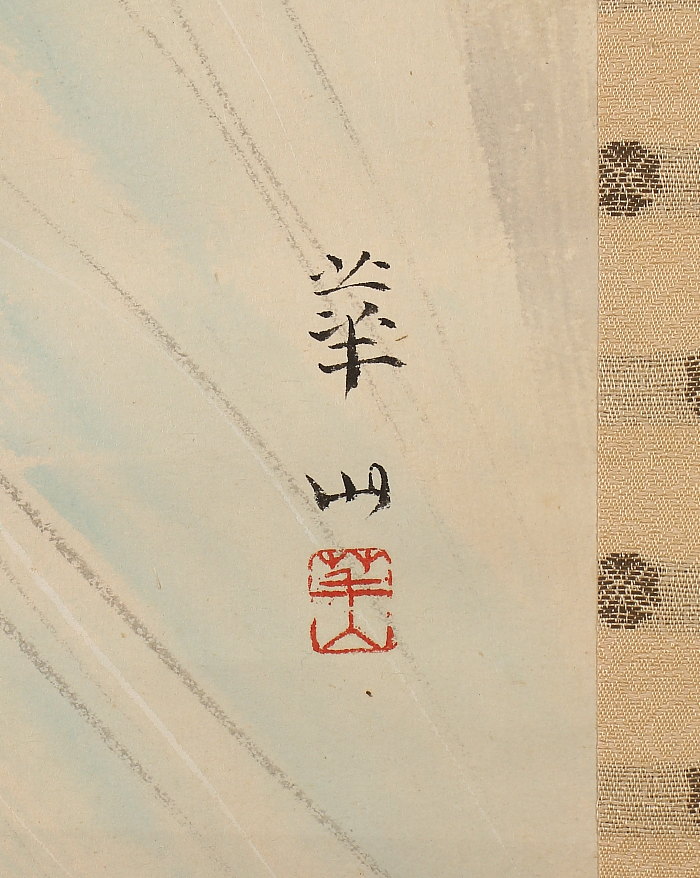 華山
華山